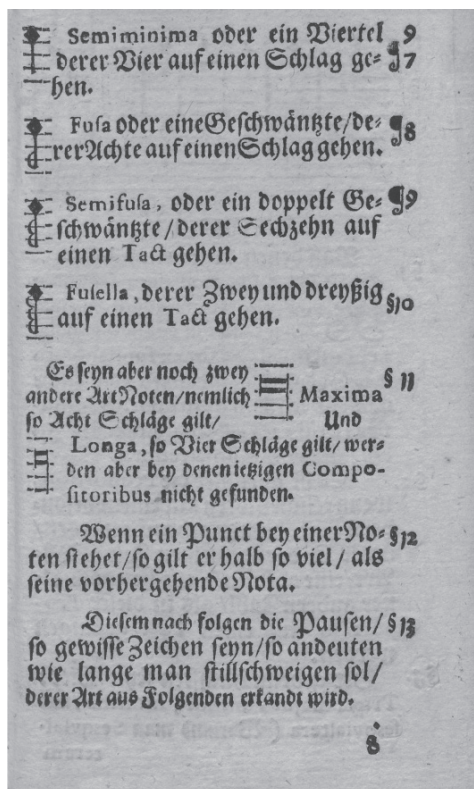 Semiminima oder ein Viertel 9
derer Vier auf einen Schlag ge= ¶7
hen.
Fusa oder eine Geschwäntzte/de= ¶8
rer Achte auf einen Schlag gehen.
Semifusa, oder ein doppelt Ge= ¶9
schwäntzte/derer Sechzehn auf
einen Tact gehen.
Fusella, derer Zwey und dreyßig §10
auf einen Tact gehen.
Es seyn aber noch zwey
andere Art Noten/nemlich Maxima § 11
so Acht Schläge gilt/ Und
Longa, so Vier Schläge gilt/ wer=
den aber bey denen ietzigen Compo-
sitoribus nicht gefunden.
Wenn ein Punct bey einer No= §12
ten stehet/so gilt er halb so viel/ als
seine vorhergehende Nota.
Diesem nach folgen die Pausen/ §13
so gewisse Zeichen seyn/so andeuten
wie lange man stillschweigen sol/
derer Art aus Folgenden erkandt wird.
8